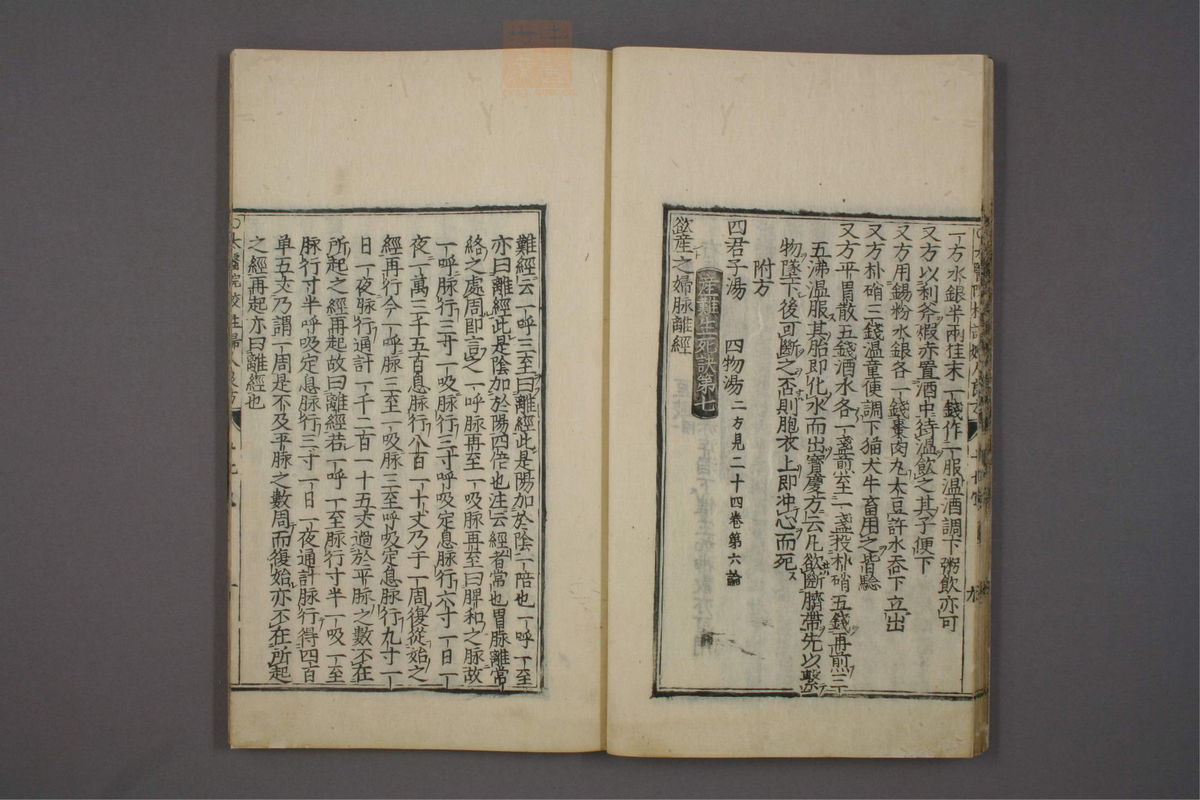 一方水銀半兩桂末一錢作一服温酒調下粥飲亦可
又方以利斧煆赤置酒中待温飲之其子便下
又方用錫粉水銀各一錢棗肉丸大豆許水吞下立出
又方朴硝三錢温童便調下猫犬牛畜用之皆驗
又方平胃散五錢酒水各一盞煎至一盞投朴硝五錢再煎三
五沸温服其胎即化水而出寳慶方云凡欲斷臍帶先以繫
物墜下後可斷之否則胞衣上即冲心而死
附方
四君子湯 四物湯 二方見二十四卷第六論
産難生死訣第七
欲産之婦脉離經
難經云一呼三至曰離經此是陽加於陰一陪也一呼一至
亦曰離經此是陰加於陽四倍也注云經者常也胃脉離常
絡之處周即言之一呼脉再至一吸脉再至曰脾和之脉故
一呼脉行三寸一吸脉行三寸呼吸定息脉行六寸一日一
夜一萬三千五百息脉行八百一十丈乃于一周復從始之
經再行今一呼脉三至一吸脉三至呼吸定息脉行九寸一
日一夜脉行通計一千二百一十五丈過於平脉之數不在
所起之經再起故曰離經若一呼一至脉行寸半一吸一至
脉行寸半呼吸定息脉行三寸一日一夜通計脉行得四百
单五丈乃謂一周是不及平脉之數周而復始亦不在所起
之經再起亦曰離經也